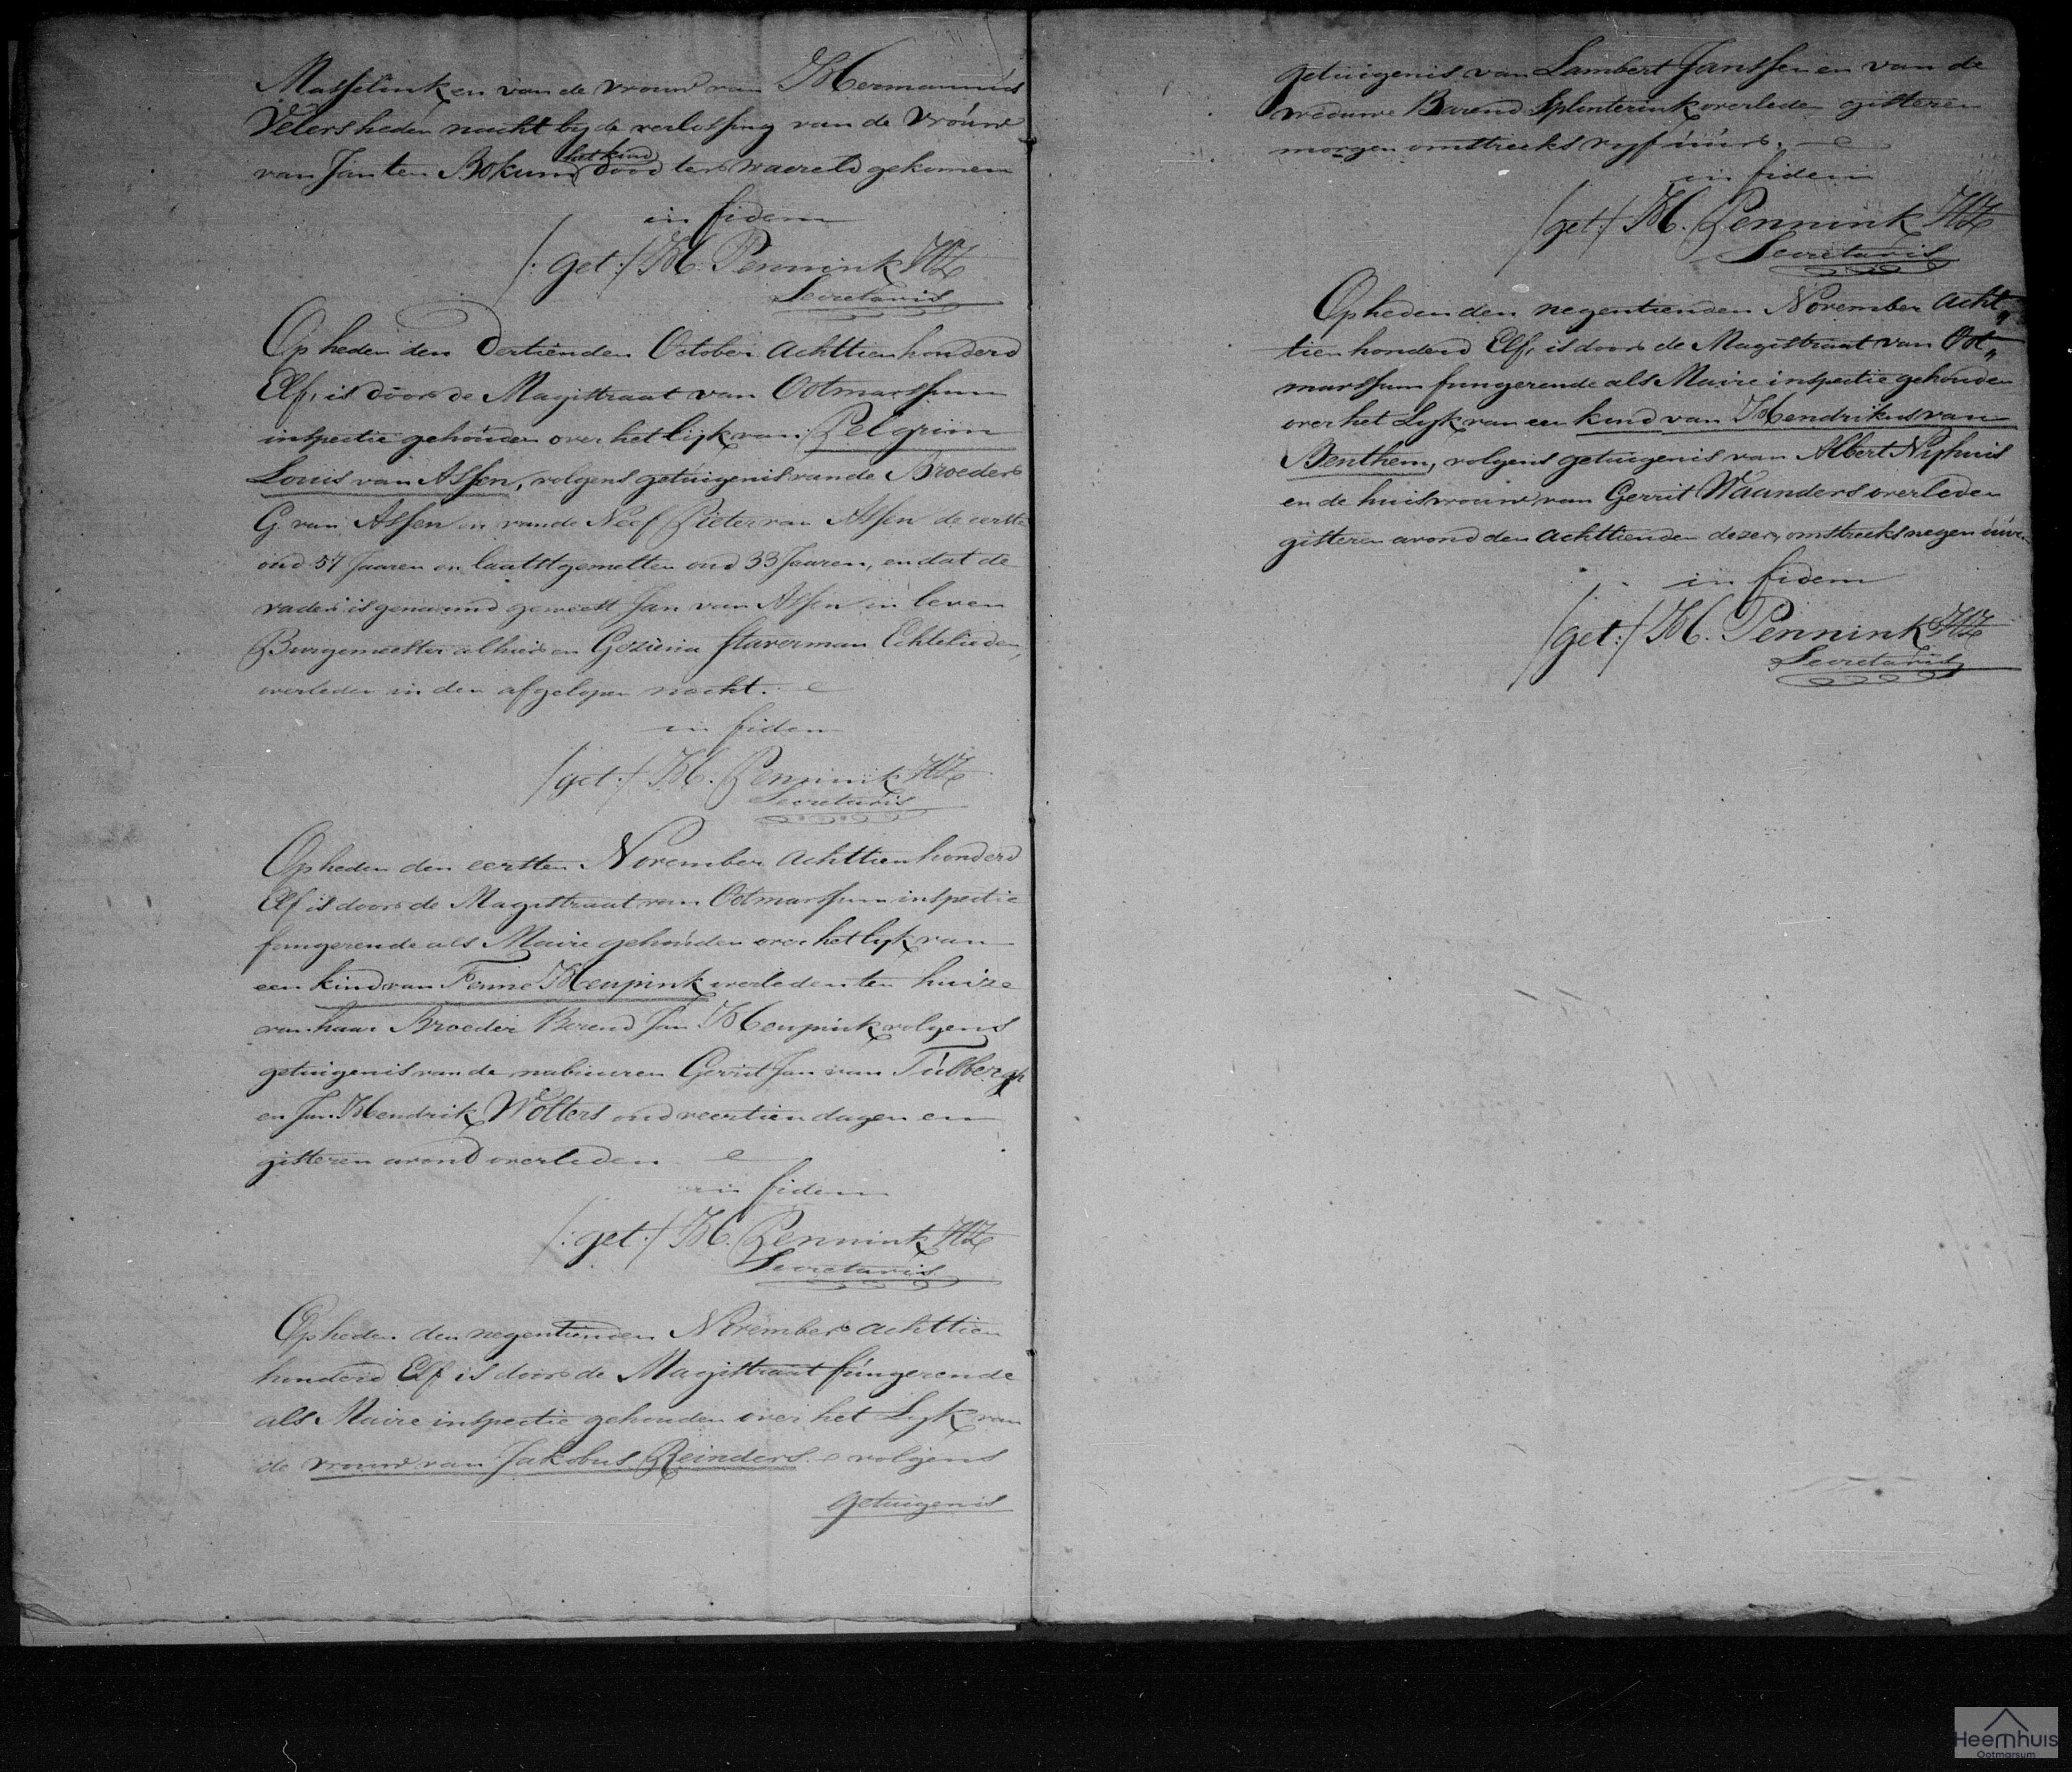 Masselink en van de vrouw van Hermannus
Velers heden nacht by de verlossing van de vrouw
van Jan ten Bokum het kind dood ter waereld gekomen
in fidem
/: get :/ H. Pennink HZ
Secretaris
Op heden den dertienden October achttienhonderd
Elf, is door de Magistraat van Ootmarssum
inspectie gehouden over het lijk van Pelgrim
Louis van Assen, volgens getuigenis van de Broeder
G. van Assen en van de Neef Pieter van Assen de eerste
oud 57 Jaaren en laatstgemelten oud 33 Jaaren, en dat de
vader is genaamd geweest Jan van Assen in leven
Burgemeester alhier en Gezina Staverman Echtelieden,
overleden in den afgelopen nacht.
in fidem
/get:/ H. Pennink HZ
Secretaris
Op heden den eersten November achttienhonderd
Elf is door de Magistraat van Ootmarssum inspectie
fungerende als Maire gehouden over het lyk van
een kind van Fenne Heupink overleden ten huize
van haar Broeder Berend Jan Heupink volgens
getuigenis van de nabuuren Gerrit Jan van Tubbergh
en Jan Hendrik Wolters oud veertien dagen en
gisteren avond overleden
in fidem
/: get :/ H. Pennink HZ
Secretaris
Op heden den negentienden November achttien
honderd Elf is door de Magistraat fungerende
als Maire inspectie gehouden over het Lyk van
de vrouw van Jakobus Reinders volgens
getuigenis
getuigenis van Lambert Janssen en van de
weduwe Barend Splenterink overleden gisteren
morgen omstreeks vyf uur.
in fidem
/get:/ H. Pennink HZ
Secretaris
Op heden den negentienden November acht„
tien honderd Elf, is door de Magistraat van Oot„
marssum fungerende als Maire inspectie gehouden
over het Lyk van een kind van Hendrikus van
Benthem, volgens getuigenis van Albert Nyhuis
en de huisvrouw van Gerrit Waanders overleden
gisteren avond den achttienden dezer, omstreeks negen uuren
in fidem
/get:/ H. Pennink HZ
Secretaris
Heemhuis
Ootmarsum